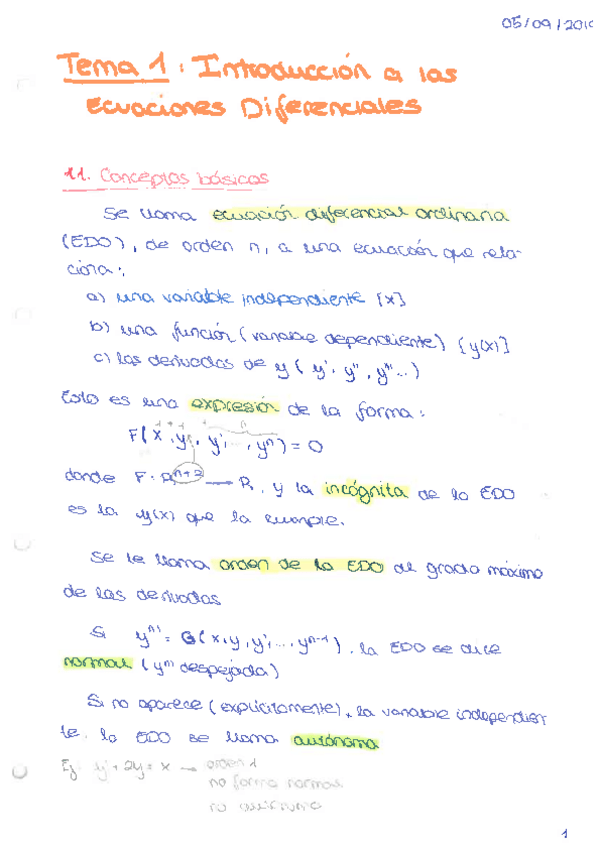 05/09/2019
Tema 1: Introducción a las
Ecuaciones Diferenciales
1.1. Conceptos básicos
Se llama ecuación diferencial ordinaria
(EDO), de orden n, a una ecuación que rela-
ciona:
a) una variable independiente [x]
b) una función (variable dependiente) [y(x)]
c) las derivadas de y (y', y'', y'''...)
Esto es una expresión de la forma:
F(x, y, y', ..., yⁿ) = 0
donde F: Rⁿ⁺² → R, y la incógnita de la EDO
es la y(x) que la cumple.
Se le llama orden de la EDO al grado máximo
de las derivadas
Si yⁿ⁾ = G(x, y, y', ..., yⁿ⁻¹), la EDO se dice
normal (yⁿ⁾ despejada)
Si no aparece (explícitamente), la variable independien
te, la EDO se llama autónoma
Ej: y' + 2y = x → orden 1
no forma normal
no autónoma
1